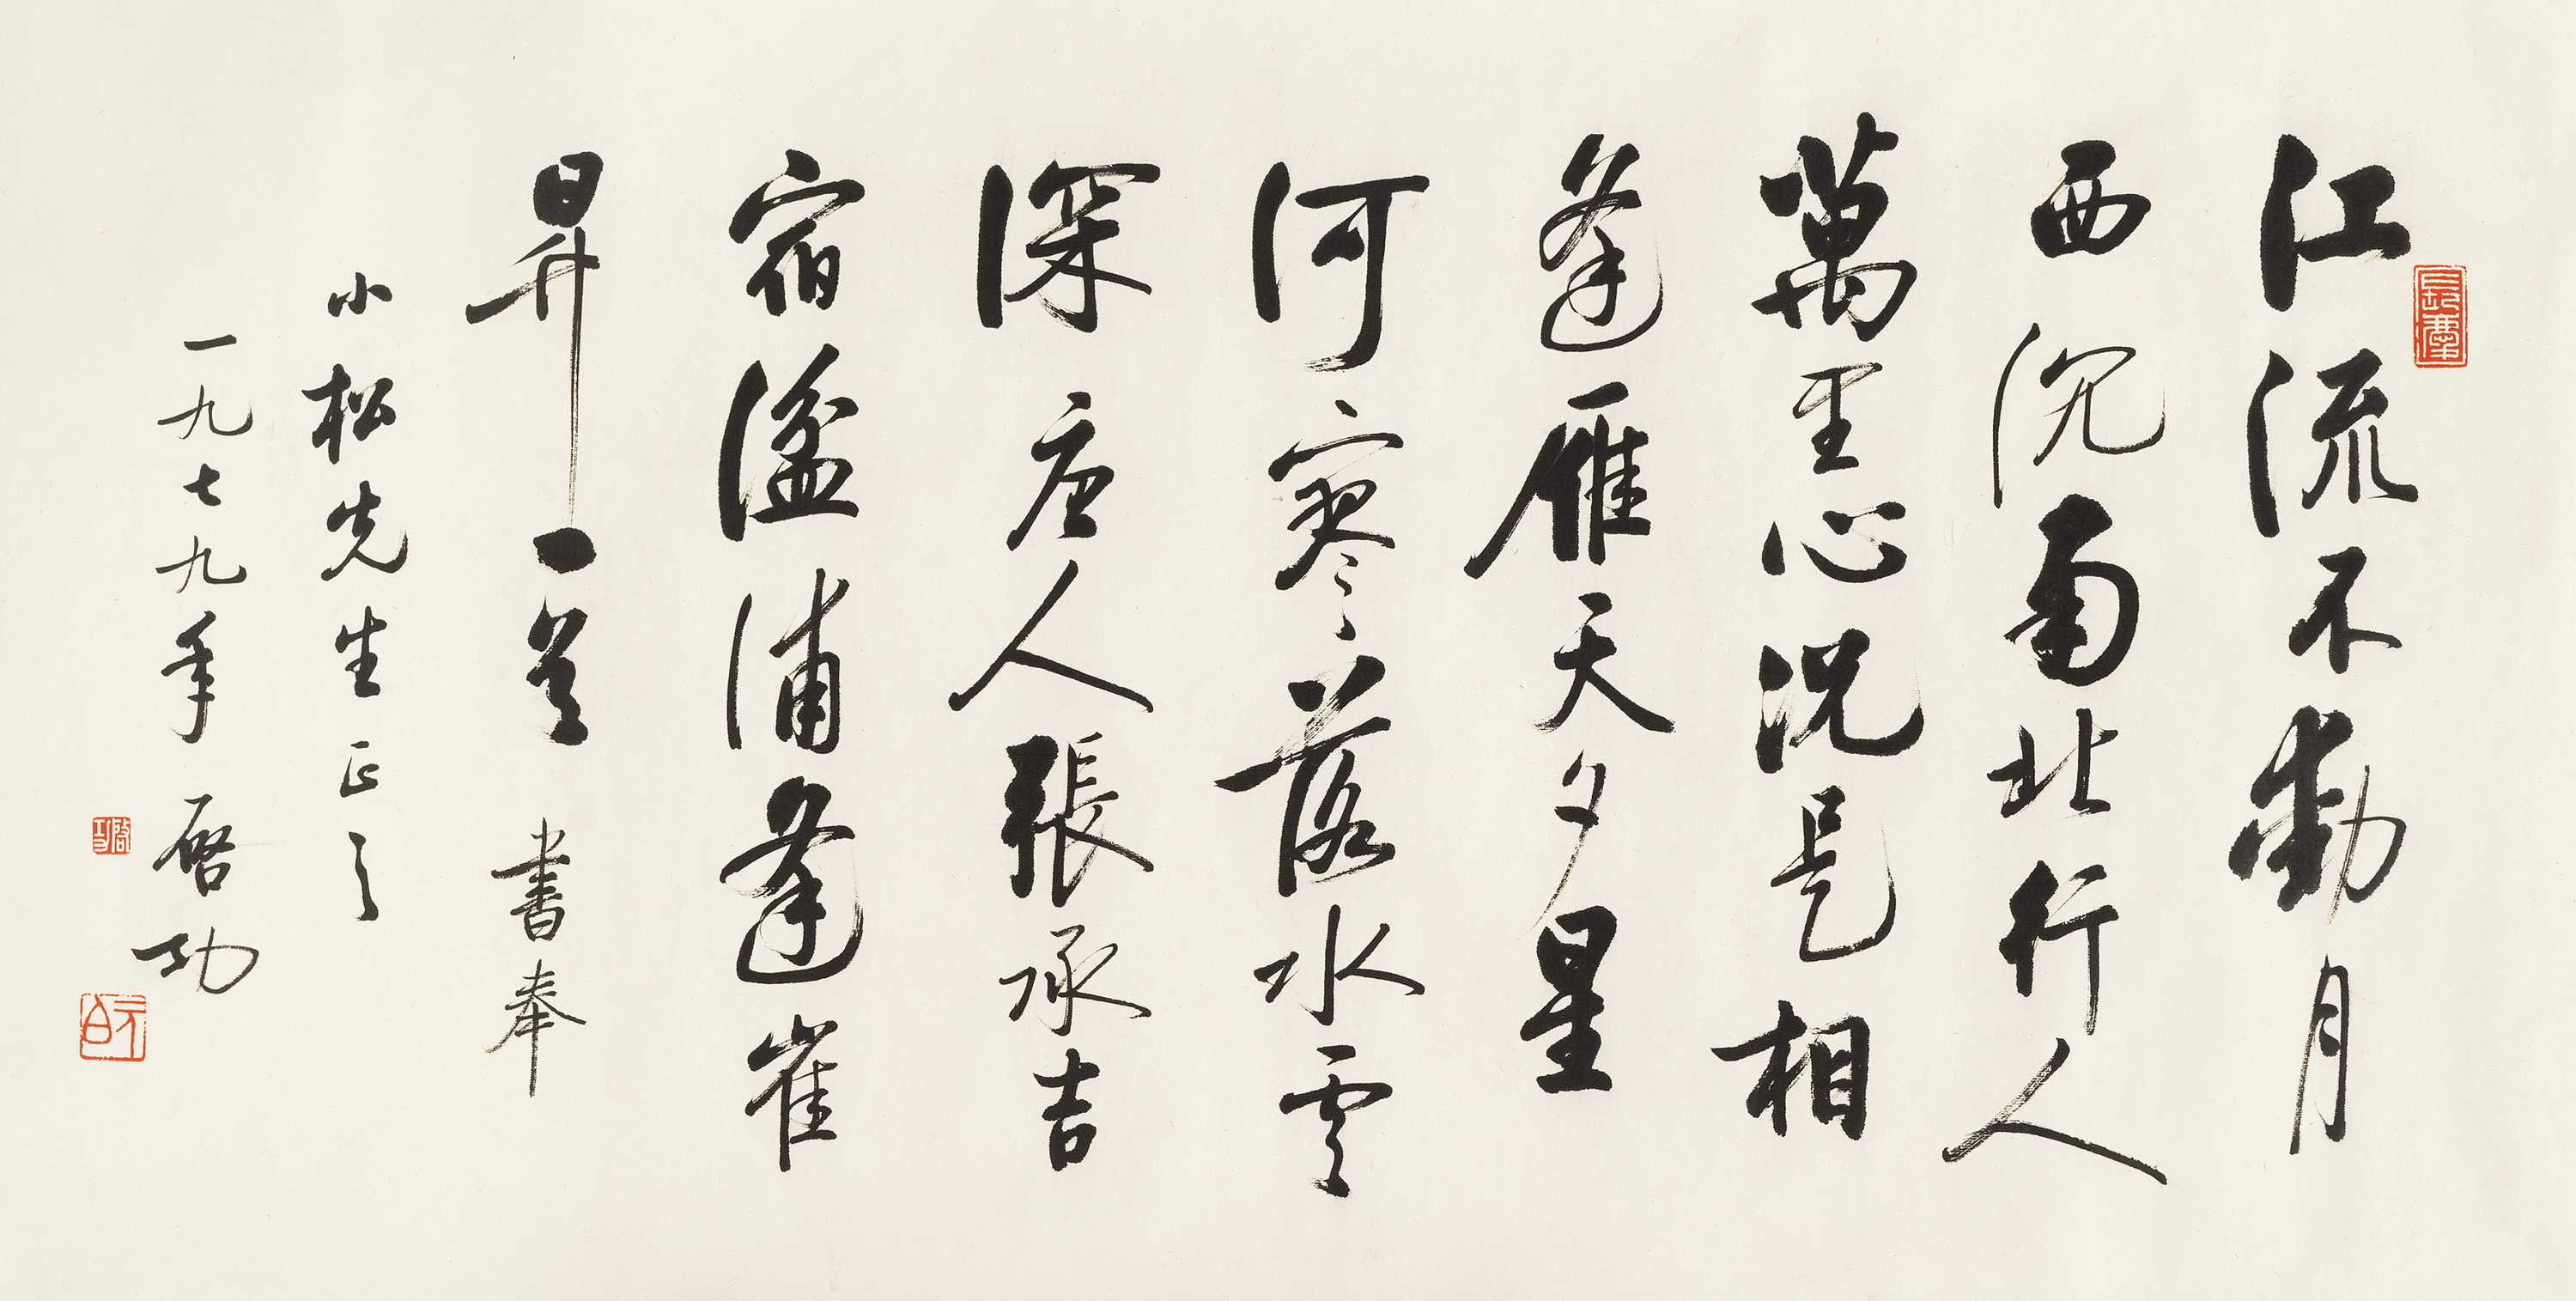 江流不動月
西沉南北行人
萬里心況是相
逢雁天夕星
河寥落水雲
深唐人張承吉
宿湓浦逢崔
昇一首 書奉
小松先生正之
一九七九年 啓功
啓功
元白